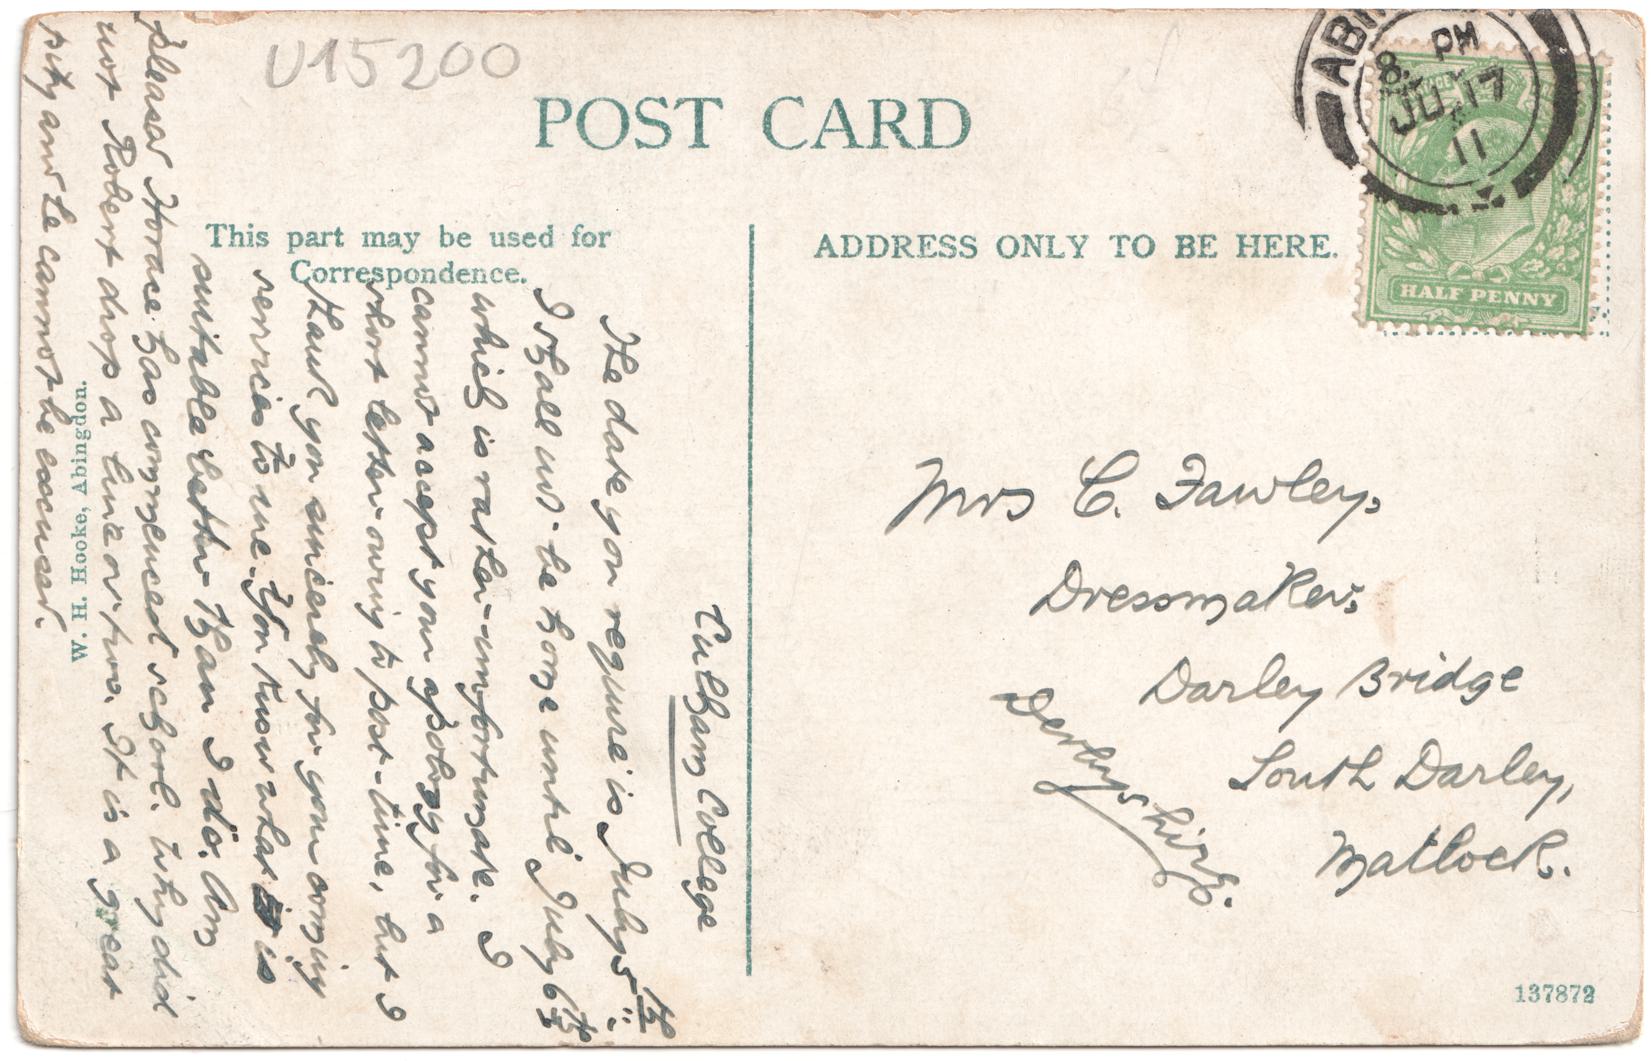 U15200
POST CARD
This part may be used for
Correspondence.
ADDRESS ONLY TO BE HERE.
8. PM
JU 17
11
HALF PENNY
Culham College
The date you require is July 5th
I shall not be home until July 6th
which is rather unfortunate. I
cannot accept your apology for a
short letter owing to post-time, but I
thank you sincerely for your coming
services to me. You know what is
suitable better than I do. Am
pleased Horace has commenced school. Why did
not Robert drop a line or two. It is a great
pity and he cannot be excused.
W. H. Hooke, Abingdon.
Mrs C. Fawley,
Dressmaker,
Darley Bridge
South Darley,
Matlock.
Derbyshire.
137872